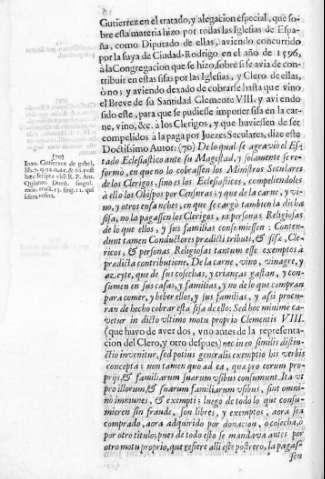 Gutierrez en el tratado, y alegacion especial, que so-
bre esta materia hizo por todas las Iglesias de Espa-
ña, como Diputado de ellas, aviendo concurrido
por la suya de Ciudad-Rodrigo en el año de 1596,
à la Congregacion que se hizo, sobre si se avia de con-
tribuir en estas sisas por las Iglesias, y Clero de ellas,
ò no; y aviendo dexado de cobrarse hasta que vino
el Breve de su Santidad Clemente VIII. y avi endo
sido este, para que se pudiesse imponer sisa en la car-
ne, vino, &c. à los Clerigos, y que huviessen de ser
compelidos à la paga por Juezes Seculares, dize este
Doctissimo Autor: (70) De lo qual se agraviò el Es-
tado Eclesiastico ante su Magestad, y solamente se re-
formò, en que no lo cobrassen los Ministros Seculares
de los Clerigos, sino los Eclesiasticos, compeliendoles
à ello los Obispos por Censuras; y que de la carne, y vi-
no, y otros en que se cargò tambien la dicha
sisa, no la pagassen los Clerigos, ni personas Religiosas
de lo que ellos, y sus familias consumiessen: Conten-
dunt tamen Conductores prædicti tributi, & sisæ, Cle-
ricos, & personas Religiosas tantum esse exemptos à
prædicta contributione, De la carne, vino, vinagre, y
azeyte, que de sus cosechas, y crianças gastan, y con-
sumen en sus casas, y familias, y no de lo que compran
para comer, y beber ellos, y sus familias, y assi procu-
ran de hecho cobrar esta sisa de ello: Sed hoc minimè ca-
vetur in dicto ultimo motu proprio Clementis VIII.
(que huvo de aver dos, vno antes de la representa-
cion del Clero, y otro despues) nec in eo similis distin-
ctio invenitur, sed potius generalis exemptio his verbis
concepta: non tamen quo ad ea, quæ pro eorum pro-
prijs, & familiarum suarum usibus consumunt. Ita ut
pro illorum, & suarum familiarum usibus, sint omni-
no immunes, & exempti; luego de todo lo que consu-
mieren sin fraude, son libres, y exemptos, aora sea
comprado, aora adquirido por donacion, ò cosecha, ò
por otro titulo; pues de todo esto se mandava antes por
otro motu proprio, que refiere alli este postrero, la pagas-
sen
(70)
Ioan. Gutierrez de gabel.